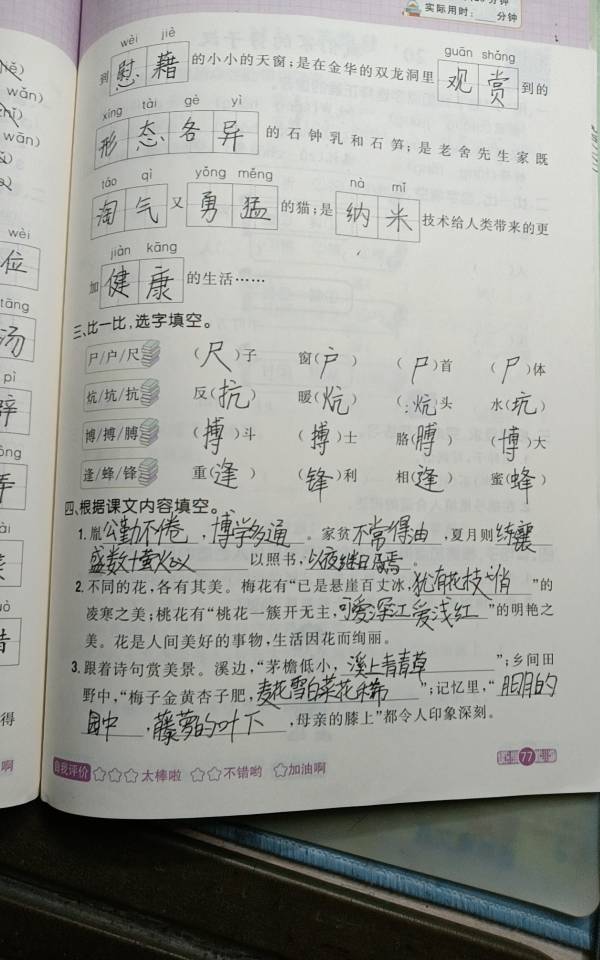 实际用时：____分钟
wèi jiè guān shǎng
到慰藉的小小的天窗；是在金华的双龙洞里观赏到的
xíng tài gè yì
形态各异的石钟乳和石笋；是老舍先生家既
táo qì yǒng měng nà mǐ
淘气又勇猛的猫；是纳米技术给人类带来的更
jiàn kāng
加健康的生活……
三、比一比，选字填空。
尸/户/尺 （尺）子 窗（户） （尸）首 （尸）体
炕/坑/抗 反（抗） 暖（炕） （炕）头 水（坑）
博/搏/膊 （搏）斗 （搏）士 胳（膊） （博）大
逢/蜂/锋 重（逢） （锋）利 相（逢） 蜜（蜂）
四、根据课文内容填空。
1. 胤公勤不倦，博学多通。家贫不常得油，夏月则练囊
盛数十萤火以以照书，以夜继日焉。
2. 不同的花，各有其美。梅花有“已是悬崖百丈冰，犹有花枝俏”的
凌寒之美；桃花有“桃花一簇开无主，可爱深红爱浅红”的明艳之
美。花是人间美好的事物，生活因花而绚丽。
3. 跟着诗句赏美景。溪边，“茅檐低小，溪上青青草”；乡间田
野中，“梅子金黄杏子肥，麦花雪白菜花稀”；记忆里，“月明的
园中，藤萝的叶下，母亲的膝上”都令人印象深刻。
自我评价 ☆☆☆太棒啦 ☆☆不错哟 ☆加油啊
77
wǎn)
wān)
wèi
位
tāng
汤
pì
得
啊